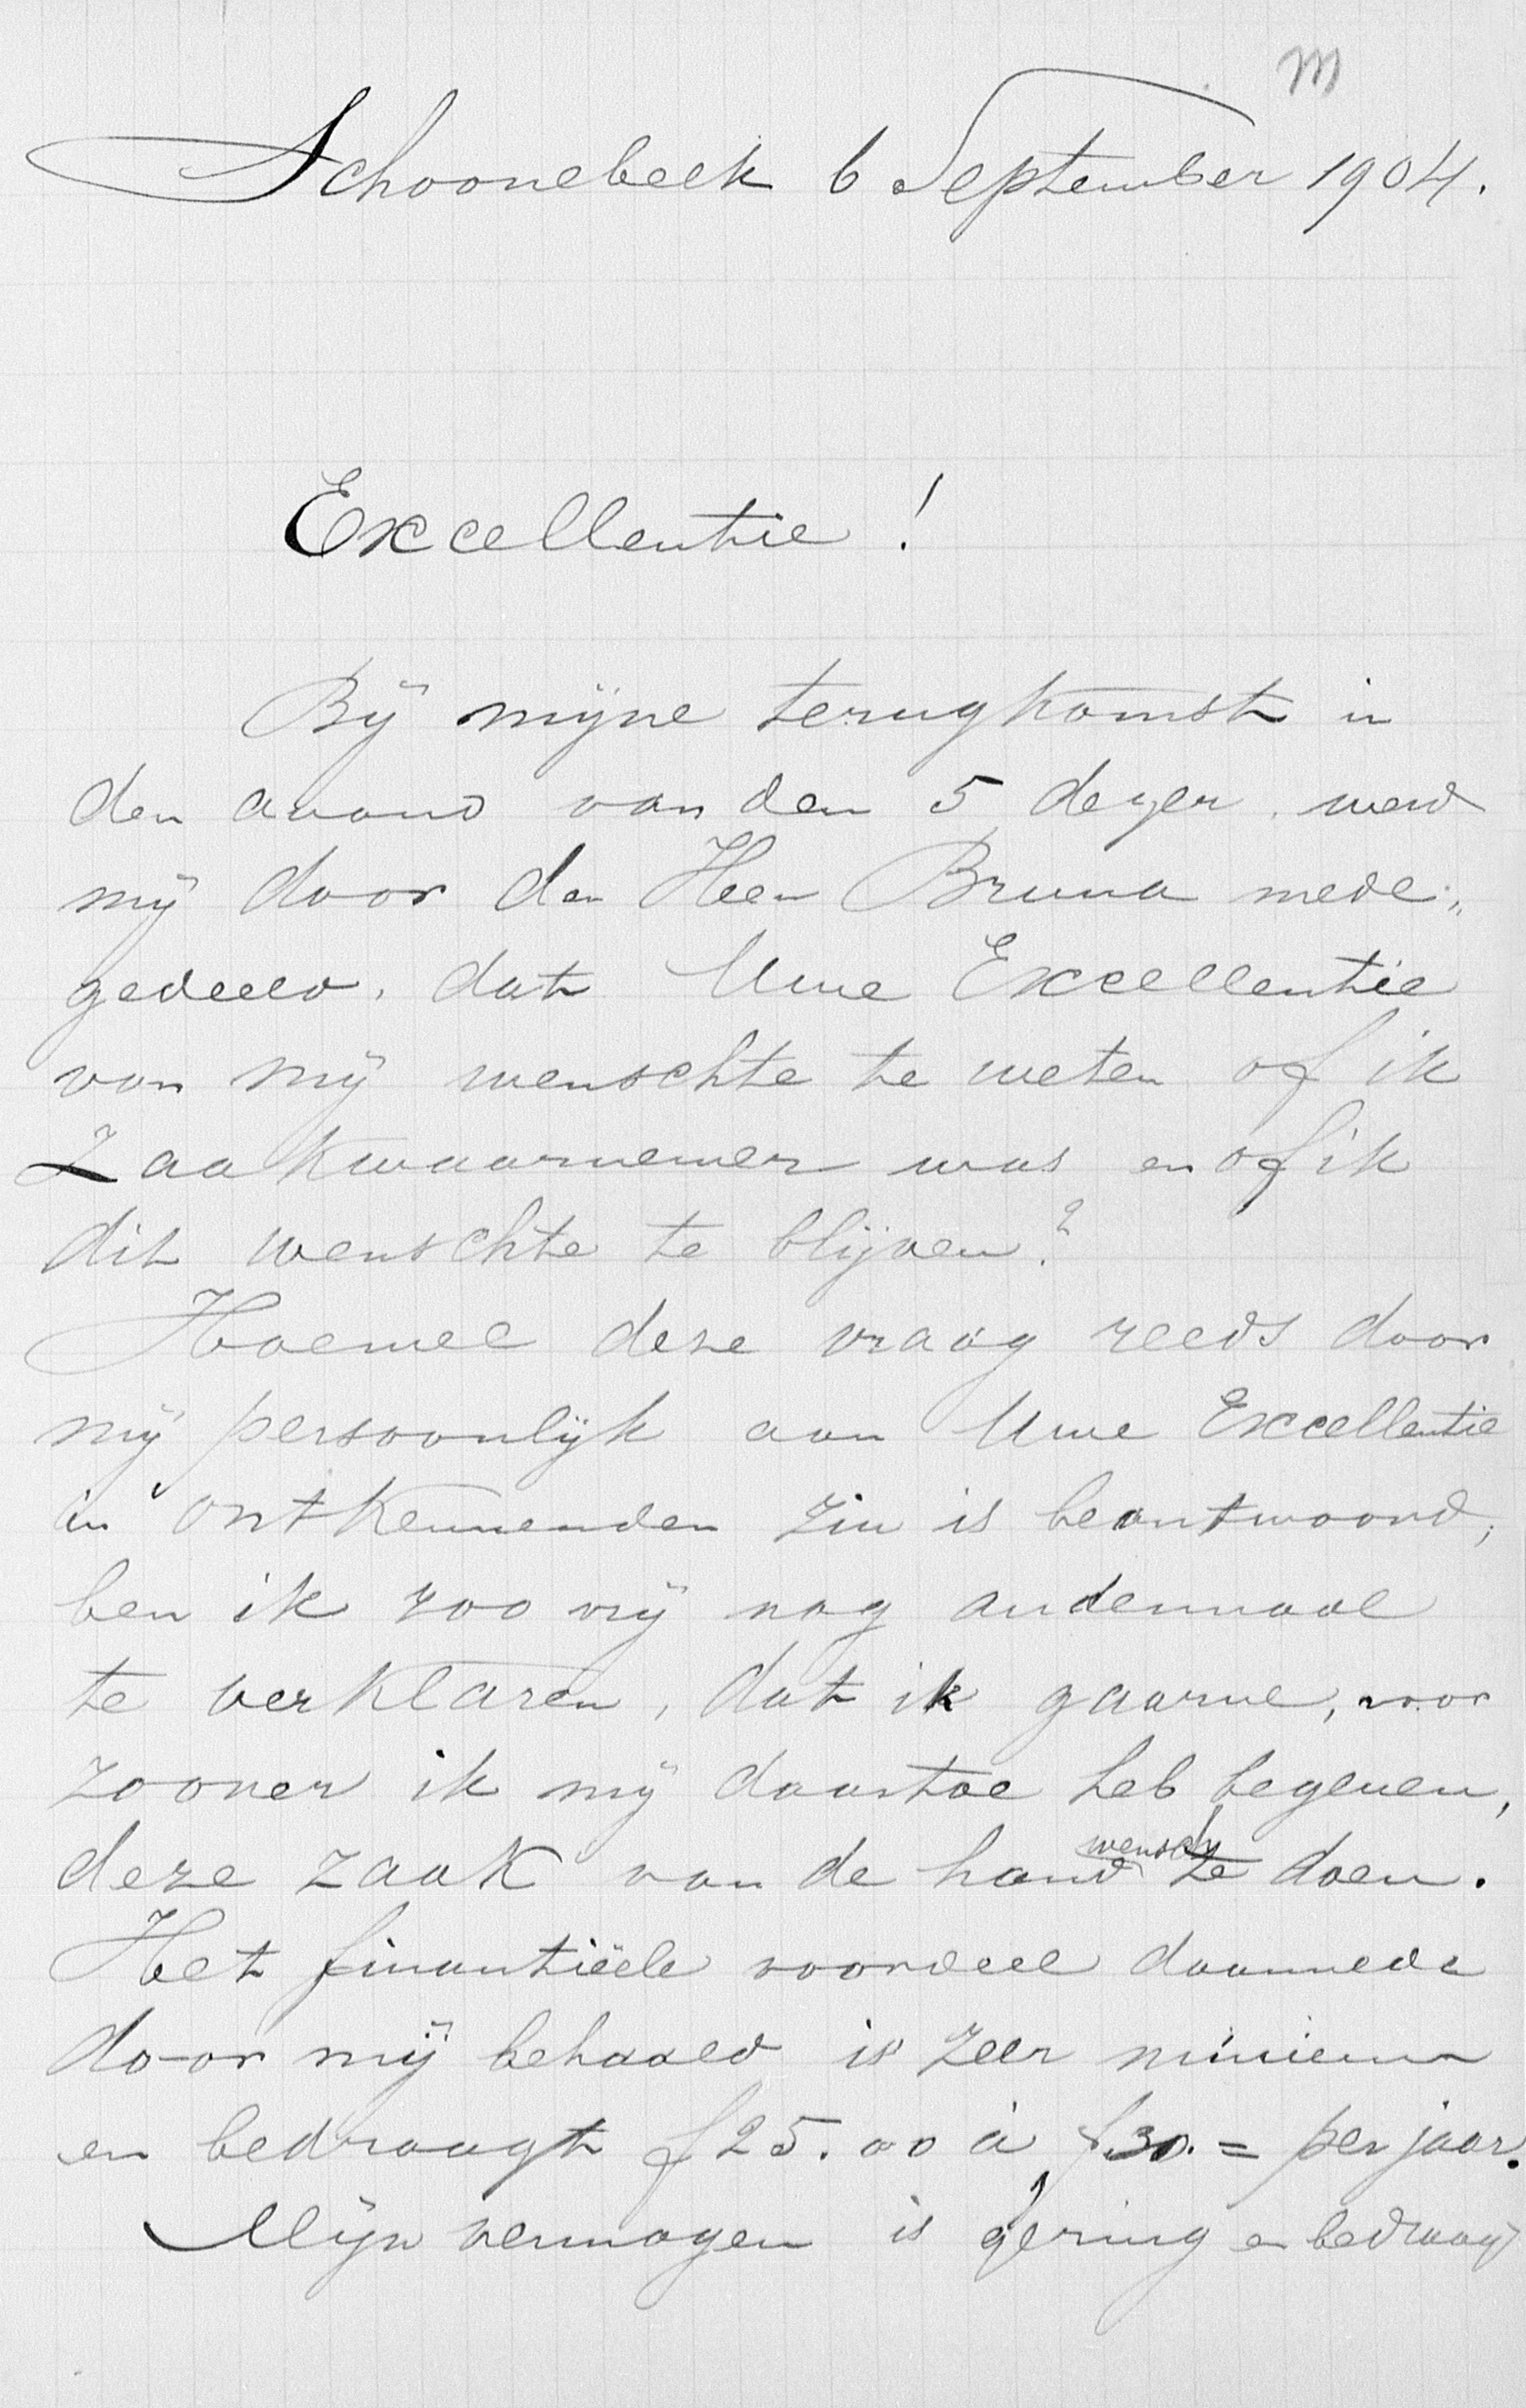 m
Schoonebeek 6 September 1904.
Excellentie!
Bij mijne terugkomst in
den avond van den 5 dezer. werd
mij door den Heer Bruna mede„
gedeeld, dat Uwe Excellentie
van mij wenschte te weten of ik
Zaakwaarnemer was en of ik
dit wenschte te blijven?
Hoewel deze vraag reeds door
mij persoonlijk aan Uwe Excellentie
in ontkennenden zin is beantwoord,
ben ik zoo vrij nog andermaal
te verklaren, dat ik gaarne, voor
zoover ik mij daartoe heb begeven,
wensch
deze zaak van de hand te doen.
Het finantiëele voordeel daarmede
door mij behaald is zeer miniem
en bedraagt f 25.00 à f 30.= per jaar.
Mijn vermogen is gering en bedraagt